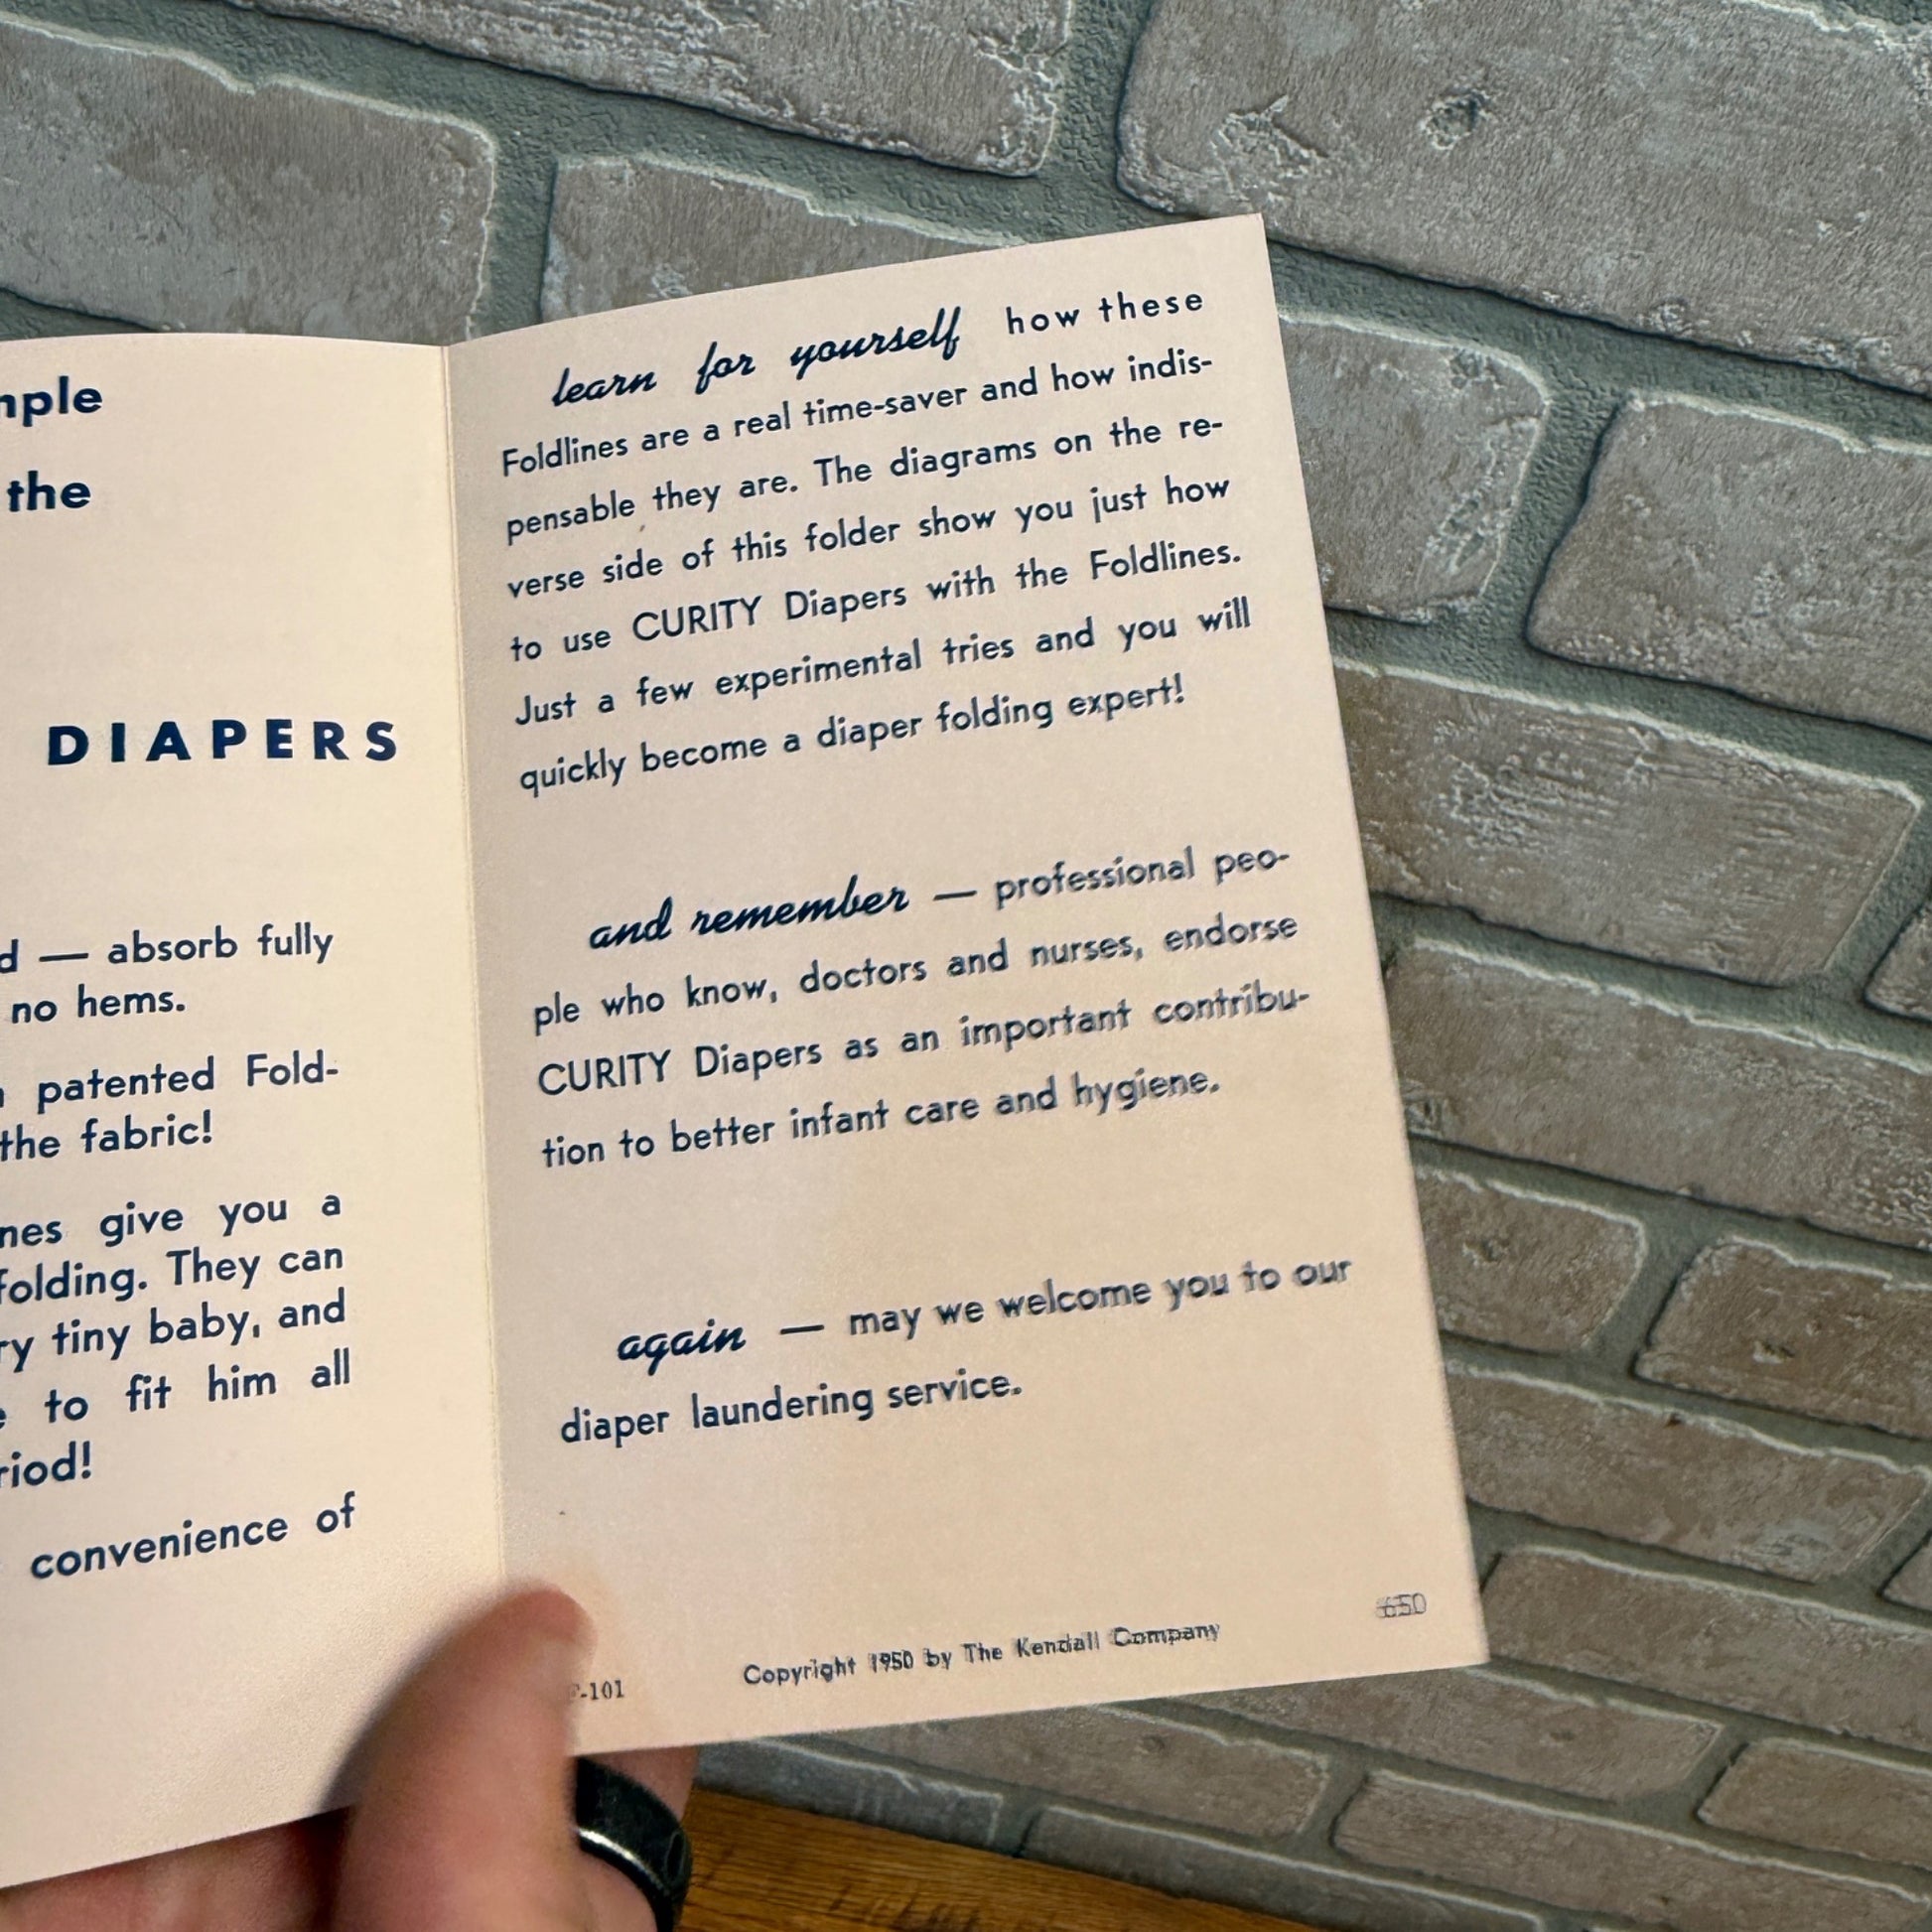 the
DIAPERS
— absorb fully
no hems.
patented Fold-
the fabric!
give you a
folding. They can
tiny baby, and
to fit him all
convenience of
learn for yourself how these
Foldlines are a real time-saver and how indis-
pensable they are. The diagrams on the re-
verse side of this folder show you just how
to use CURITY Diapers with the Foldlines.
Just a few experimental tries and you will
quickly become a diaper folding expert!
and remember — professional peo-
ple who know, doctors and nurses, endorse
CURITY Diapers as an important contribu-
tion to better infant care and hygiene.
again — may we welcome you to our
diaper laundering service.
650
-101
Copyright 1950 by The Kendall Company